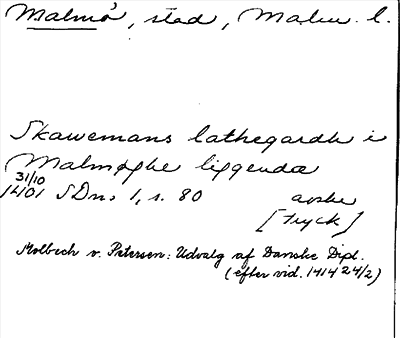 Malmö, stad, Malm. l.
Skawemans lathegardh i
Malmøghe liggendæ
31/10
1401 SDns 1, s. 80 avskr
[tryck]
Molbech o. Petersen: Udvalg af Danske Dipl.
(efter vid. 1414 24/2)